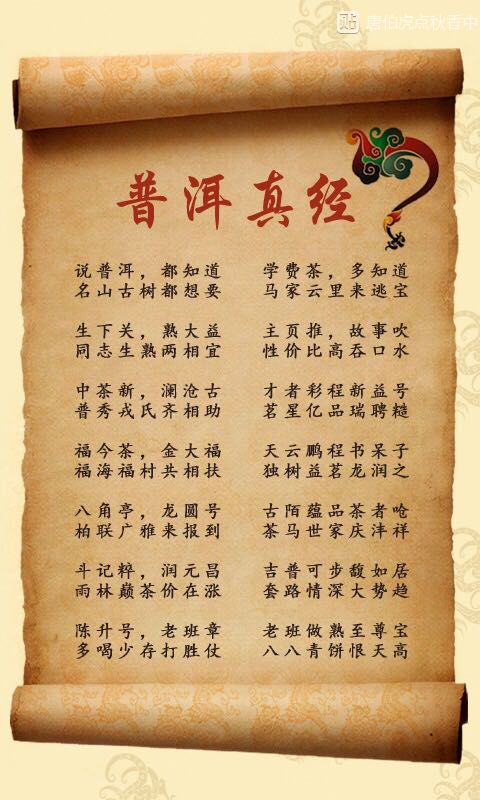 贴 唐伯虎点秋香中
普洱真经
说普洱，都知道 学费茶，多知道
名山古树都想要 马家云里来逃宝
生下关，熟大益 主页推，故事吹
同志生熟两相宜 性价比高吞口水
中茶新，澜沧古 才者彩程新益号
普秀戎氏齐相助 茗星亿品瑞聘糙
福今茶，金大福 天云鹏程书呆子
福海福村共相扶 独树益茗龙润之
八角亭，龙圆号 古陌蕴品茶者呛
柏联广雅来报到 茶马世家庆沣祥
斗记粹，润元昌 吉普可步馥如居
雨林巅茶价在涨 套路情深大势趋
陈升号，老班章 老班做熟至尊宝
多喝少存打胜仗 八八青饼恨天高